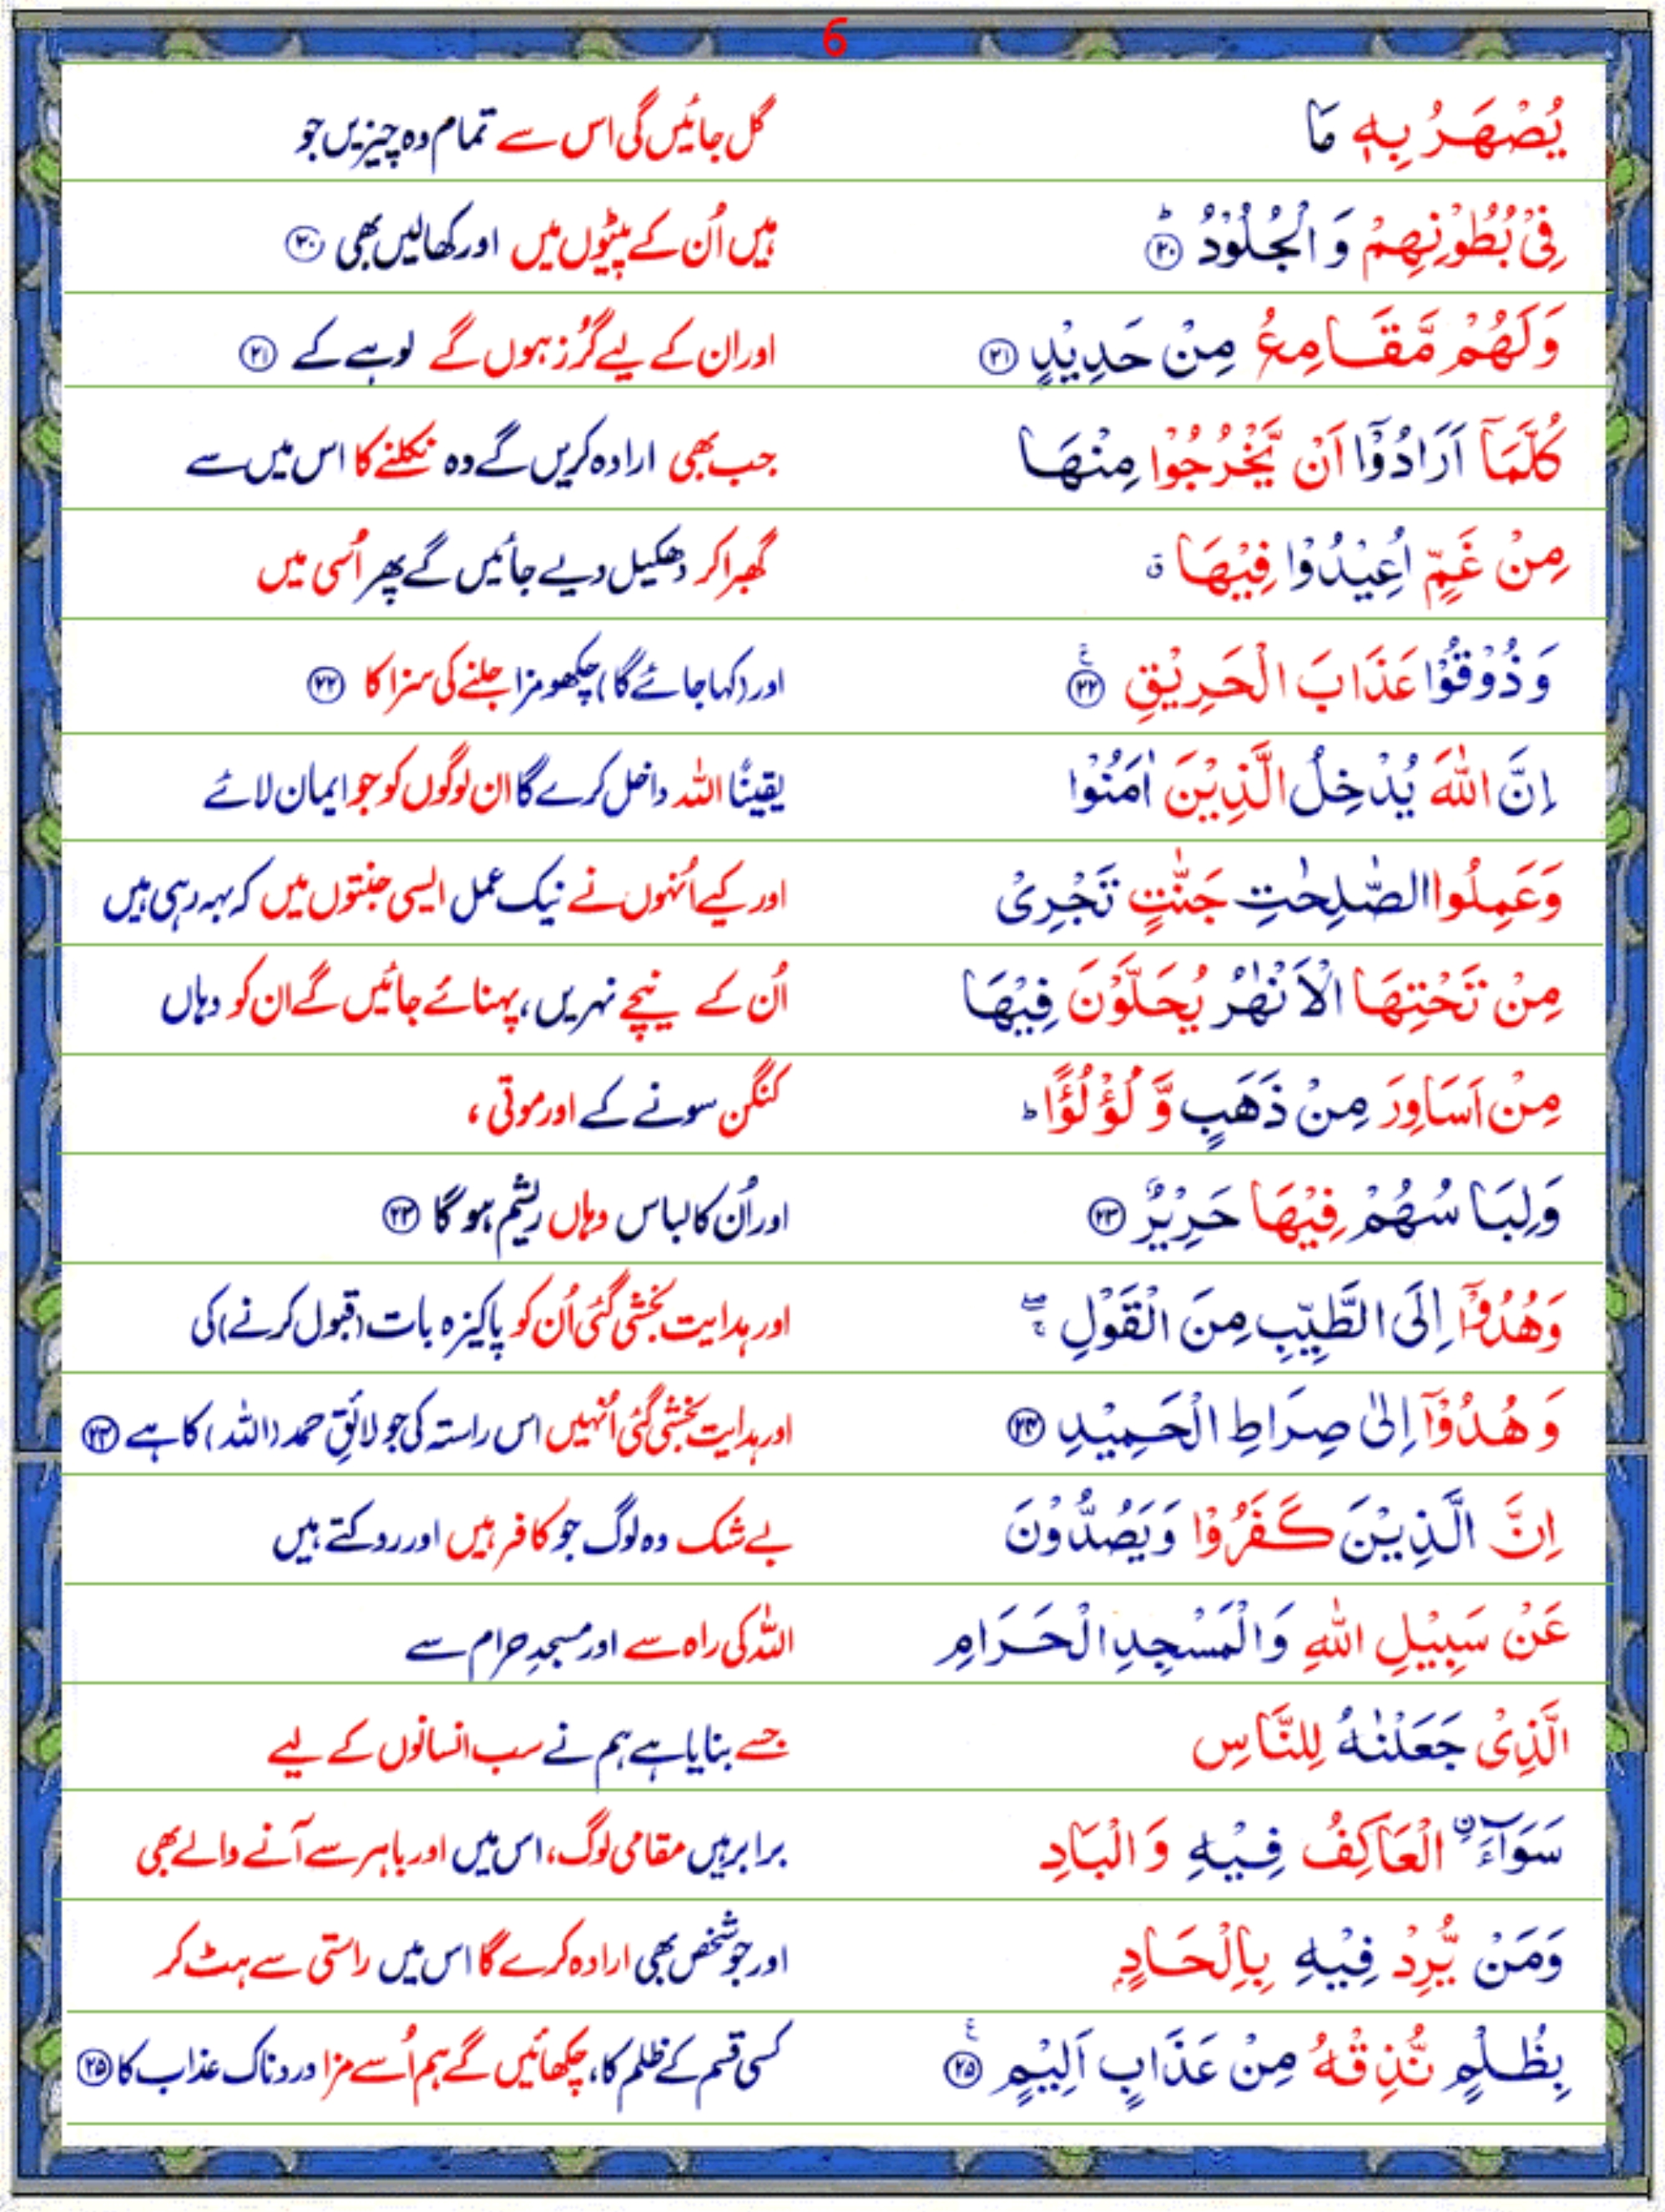 6
يُصْهَرُ بِهٖ مَا گل جائیں گی اس سے تمام وہ چیزیں جو
فِيْ بُطُوْنِهِمْ وَ الْجُلُوْدُ ؕ ﴿۲۰﴾ ہیں اُن کے پیٹوں میں اور کھالیں بھی ﴿۲۰﴾
وَلَهُمْ مَّقَامِعُ مِنْ حَدِيْدٍ ﴿۲۱﴾ اور ان کے لیے گُرز ہوں گے لوہے کے ﴿۲۱﴾
كُلَّمَآ اَرَادُوْٓا اَنْ يَّخْرُجُوْا مِنْهَا جب بھی ارادہ کریں گے وہ نکلنے کا اس میں سے
مِنْ غَمٍّ اُعِيْدُوْا فِيْهَا ۗ گھبرا کر دھکیل دیے جائیں گے پھر اُسی میں
وَ ذُوْقُوْا عَذَابَ الْحَرِيْقِ ﴿۲۲﴾ۧ اور (کہا جائے گا) چکھو مزا جلنے کی سزا کا ﴿۲۲﴾
اِنَّ اللّٰهَ يُدْخِلُ الَّذِيْنَ اٰمَنُوْا یقینًا اللہ داخل کرے گا ان لوگوں کو جو ایمان لائے
وَعَمِلُوا الصّٰلِحٰتِ جَنّٰتٍ تَجْرِيْ اور کیے اُنہوں نے نیک عمل ایسی جنتوں میں کہ بہہ رہی ہیں
مِنْ تَحْتِهَا الْاَنْهٰرُ يُحَلَّوْنَ فِيْهَا اُن کے نیچے نہریں، پہنائے جائیں گے ان کو وہاں
مِنْ اَسَاوِرَ مِنْ ذَهَبٍ وَّ لُؤْلُؤًا ؕ کنگن سونے کے اور موتی ،
وَلِبَاسُهُمْ فِيْهَا حَرِيْرٌ ﴿۲۳﴾ اور اُن کا لباس وہاں ریشم ہو گا ﴿۲۳﴾
وَهُدُوْٓا اِلَى الطَّيِّبِ مِنَ الْقَوْلِ ۖۚ اور ہدایت بخشی گئی اُن کو پاکیزہ بات (قبول کرنے) کی
وَ هُدُوْٓا اِلٰى صِرَاطِ الْحَمِيْدِ ﴿۲۴﴾ اور ہدایت بخشی گئی اُنہیں اس راستہ کی جو لائقِ حمد (اللہ) کا ہے ﴿۲۴﴾
اِنَّ الَّذِيْنَ كَفَرُوْا وَيَصُدُّوْنَ بے شک وہ لوگ جو کافر ہیں اور روکتے ہیں
عَنْ سَبِيْلِ اللّٰهِ وَالْمَسْجِدِ الْحَرَامِ اللہ کی راہ سے اور مسجدِ حرام سے
الَّذِيْ جَعَلْنٰهُ لِلنَّاسِ جسے بنایا ہے ہم نے سب انسانوں کے لیے
سَوَآءَ ِۨ الْعَاكِفُ فِيْهِ وَ الْبَادِ برابر ہیں مقامی لوگ، اس میں اور باہر سے آنے والے بھی
وَمَنْ يُّرِدْ فِيْهِ بِاِلْحَادٍۭ اور جو شخص بھی ارادہ کرے گا اس میں راستی سے ہٹ کر
بِظُلْمٍ نُّذِقْهُ مِنْ عَذَابٍ اَلِيْمٍ ﴿۲۵﴾ۧ کسی قسم کے ظلم کا، چکھائیں گے ہم اُسے مزا دردناک عذاب کا ﴿۲۵﴾